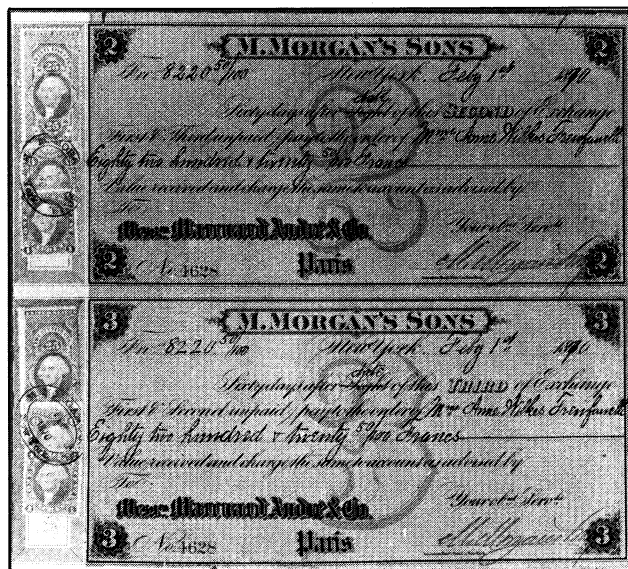 2 M. MORGAN'S SONS 2
For 8220 50/100 New York, Feby 1st 1870
Sixty days after date Sight of this SECOND of Exchange
First & Third unpaid, pay to the order of Mme Anne Wilkes
Eighty two hundred & twenty 50/100 Francs
Value received and charge the same to account as advised by
To Your obt. Servts.
Messrs. Marcuard André & Co.
2 No. 4628 Paris 2
3 M. MORGAN'S SONS 3
For 8220 50/100 New York, Feby 1st 1870
Sixty days after date Sight of this THIRD of Exchange
First & Second unpaid, pay to the order of Mme Anne Wilkes
Eighty two hundred & twenty 50/100 Francs
Value received and charge the same to account as advised by
To Your obt. Servts.
Messrs. Marcuard André & Co.
3 No. 4628 Paris 3